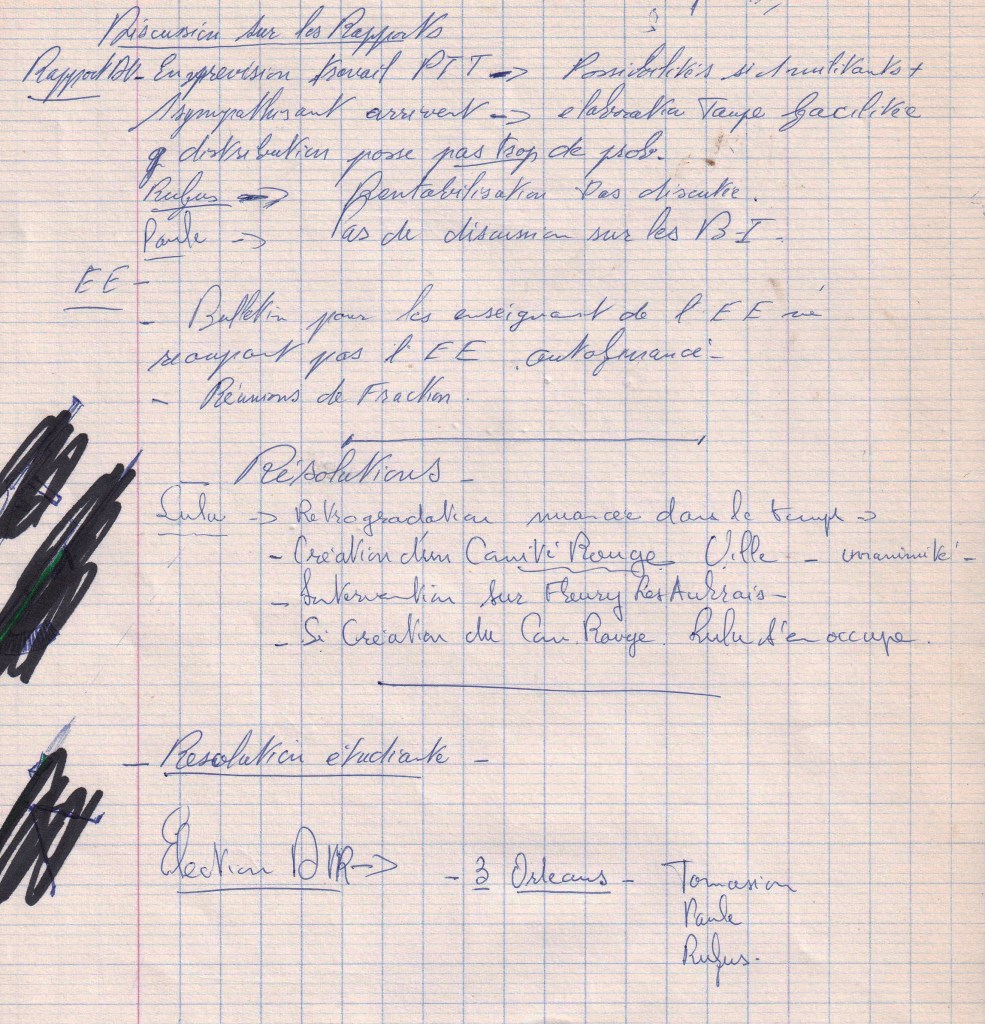 Discussion sur les Rapports
Rapport DV - En prevision travail PTT -> Possibilités si 1 militants +
1 sympathisant arrivent -> élaboration Taupe facilitée
distribution posse pas trop de prob.
Rufus -> Rentabilisation Pas discutée.
Paule -> Pas de discussion sur les B-I.
EE -
- Bulletin pour les enseignant de l'EE ne
recoupant pas l'EE autofinancé -
- Réunions de Fraction.
Résolutions -
Lulu -> Retrogradation nuancée dans le temps ->
- Création d'un Comité Rouge Ville - unanimité -
- Intervention sur Fleury Les Aubrais -
- Si Création du Com. Rouge. Lulu s'en occupe.
- Resolution étudiante -
Élection DVR -> - 3 Orleans - Tomasion
Paule
Rufus.